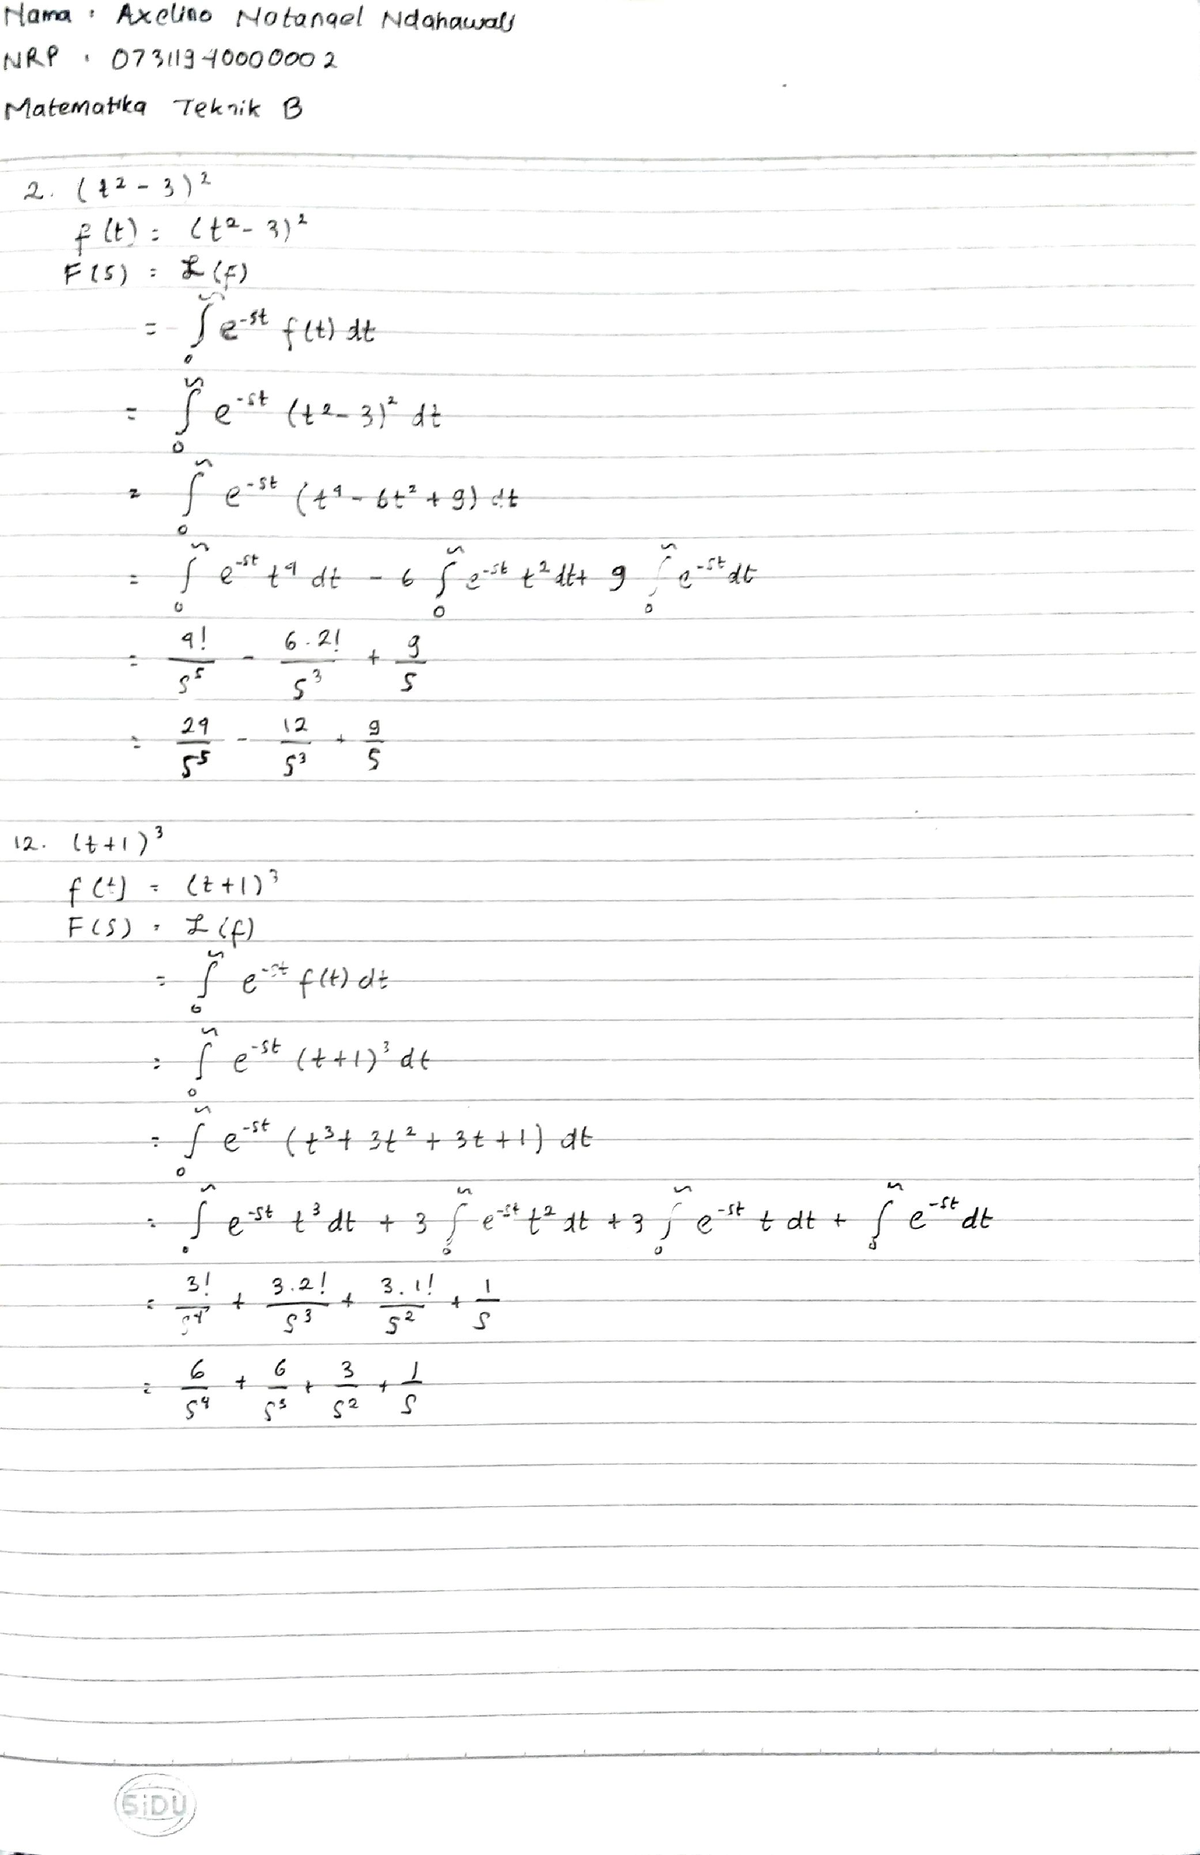 Nama : Axelino Notanael Ndahawali
NRP : 07311940000002
Matematika Teknik B
2. (t² - 3)²
f(t) = (t² - 3)²
F(s) = ℒ(f)
= ∫₀^∞ e^-st f(t) dt
= ∫₀^∞ e^-st (t² - 3)² dt
= ∫₀^∞ e^-st (t⁴ - 6t² + 9) dt
= ∫₀^∞ e^-st t⁴ dt - 6 ∫₀^∞ e^-st t² dt + 9 ∫₀^∞ e^-st dt
= 4!/s⁵ - 6.2!/s³ + 9/s
= 24/s⁵ - 12/s³ + 9/s
12. (t+1)³
f(t) = (t+1)³
F(s) = ℒ(f)
= ∫₀^∞ e^-st f(t) dt
= ∫₀^∞ e^-st (t+1)³ dt
= ∫₀^∞ e^-st (t³ + 3t² + 3t + 1) dt
= ∫₀^∞ e^-st t³ dt + 3 ∫₀^∞ e^-st t² dt + 3 ∫₀^∞ e^-st t dt + ∫₀^∞ e^-st dt
= 3!/s⁴ + 3.2!/s³ + 3.1!/s² + 1/s
= 6/s⁴ + 6/s³ + 3/s² + 1/s
SiDU